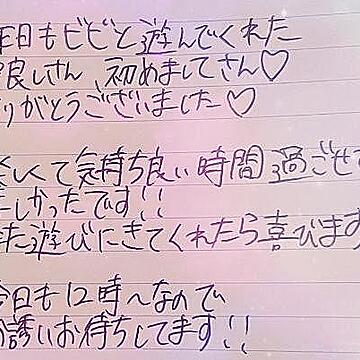 日もビビと遊んでくれた
良しさん、初めましてさん♡
りがとうございました♡
しくて気持ち良い時間過ごせ
しかったです!!
た遊びにきてくれたら喜びます
今日も12時〜なので
誘いお待ちしてます!!